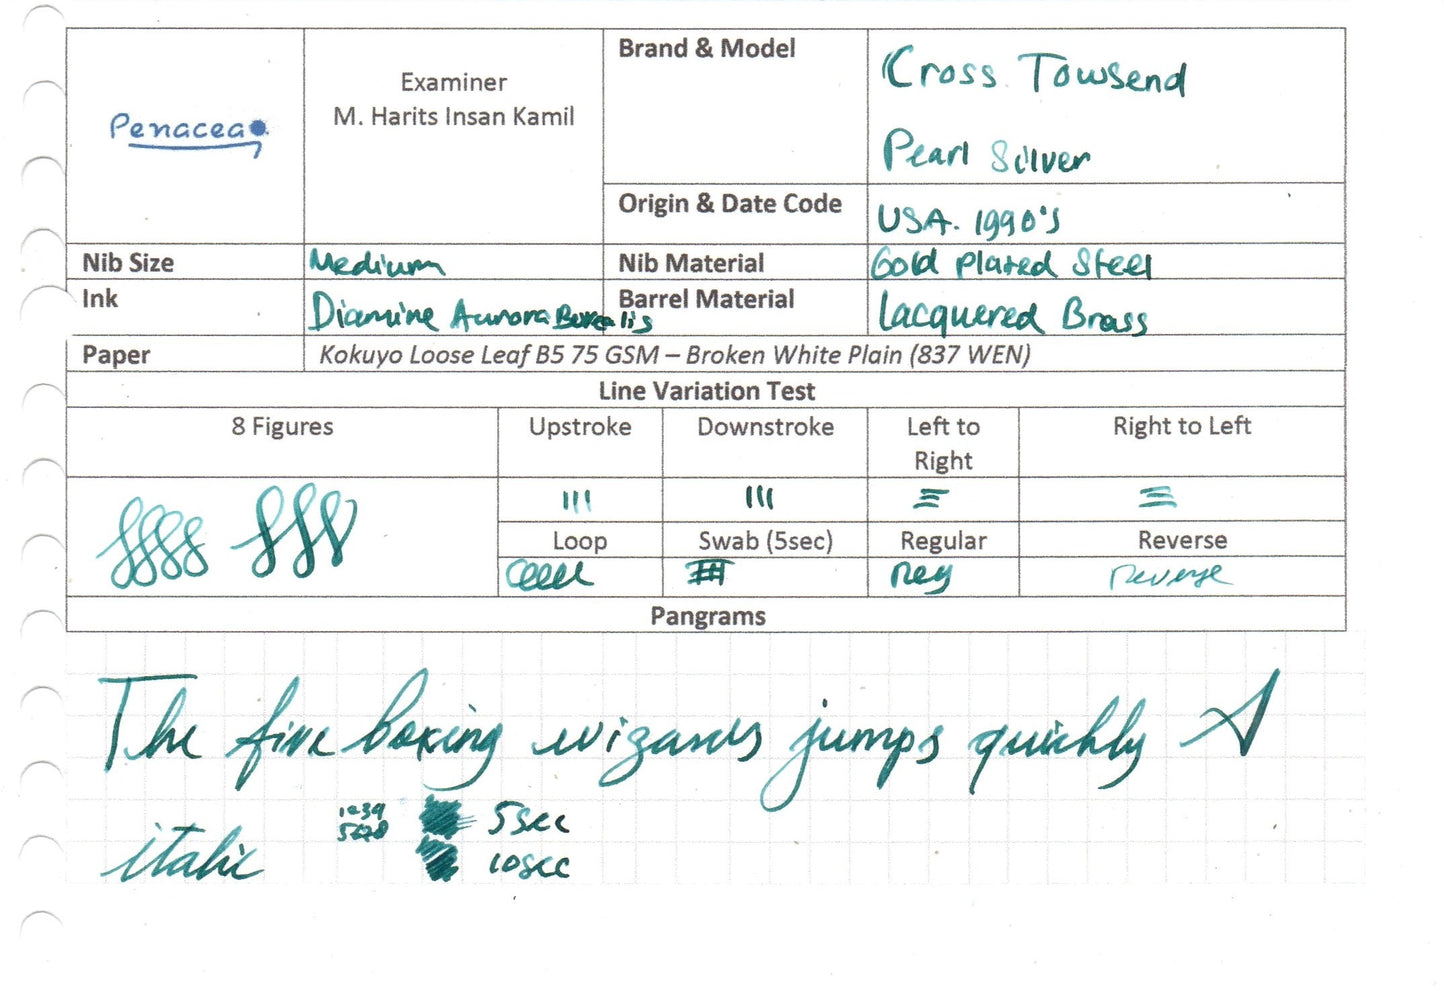 Penacea
Examiner
M. Harits Insan Kamil
Brand & Model
Cross Towsend
Pearl Silver
Origin & Date Code
USA. 1990's
Nib Size
Medium
Nib Material
Gold Plated Steel
Ink
Diamine Aurora Borealis
Barrel Material
Lacquered Brass
Paper
Kokuyo Loose Leaf B5 75 GSM – Broken White Plain (837 WEN)
Line Variation Test
8 Figures
Upstroke
Downstroke
Left to
Right
Right to Left
Loop
Swab (5sec)
Regular
Reverse
Reg
Reverse
Pangrams
The five boxing wizards jumps quickly
1234
5678
5sec
italic
10sec